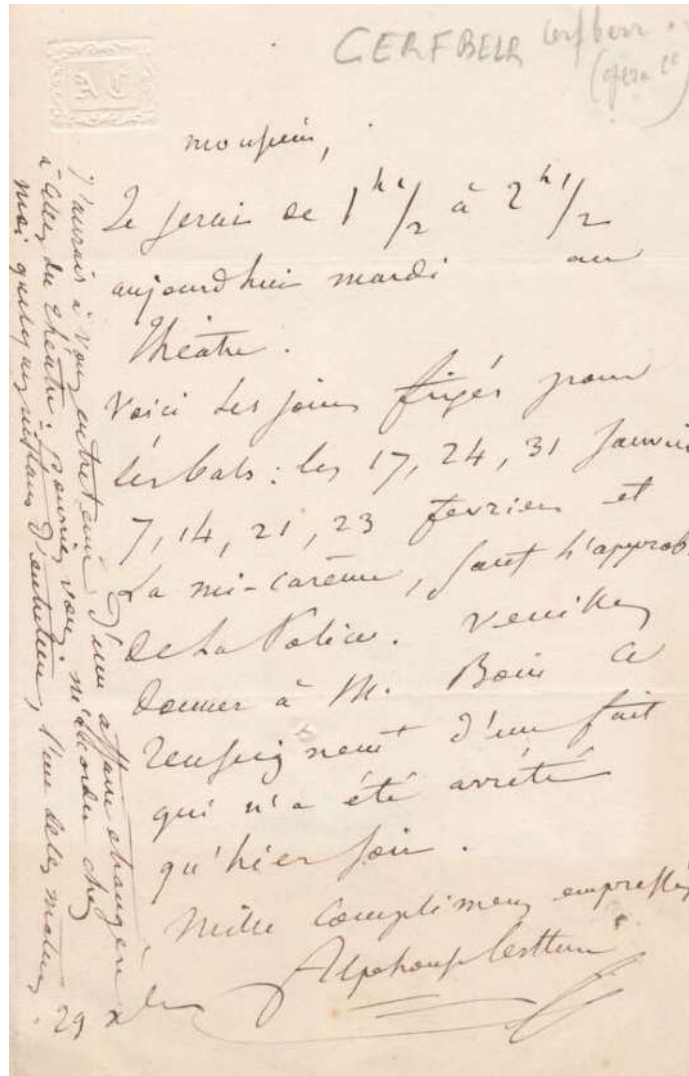 AC
CERFBEER Cerfbeer
(opera
Monsieur,
Je serai de 1 h 1/2 à 2 h 1/2
aujourd'hui mardi au
Théâtre.
Voici les jours fixés pour
les bals : les 17, 24, 31 Janvier
7, 14, 21, 23 fevrier et
La mi-carême, sauf l'approb
de La Police. Veuillez
donner à M. ce
renseignemt d'un fait
qui n'a été arrêté
qu'hier soir.
Mille complimens empressés
Alphonse Cerfberr
29 xbre
J'aurais à vous entretenir d'une affaire étrangère
à celles du théâtre. Pourriez vous m'accorder chez
moi quelques instans d'entretien, l'une de ces matinées